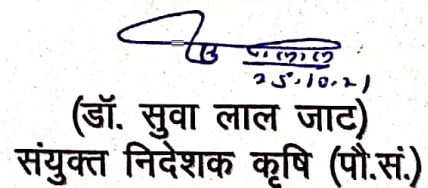 25.10.21
(डॉ. सुवा लाल जाट)
संयुक्त निदेशक कृषि (पौ.सं.)